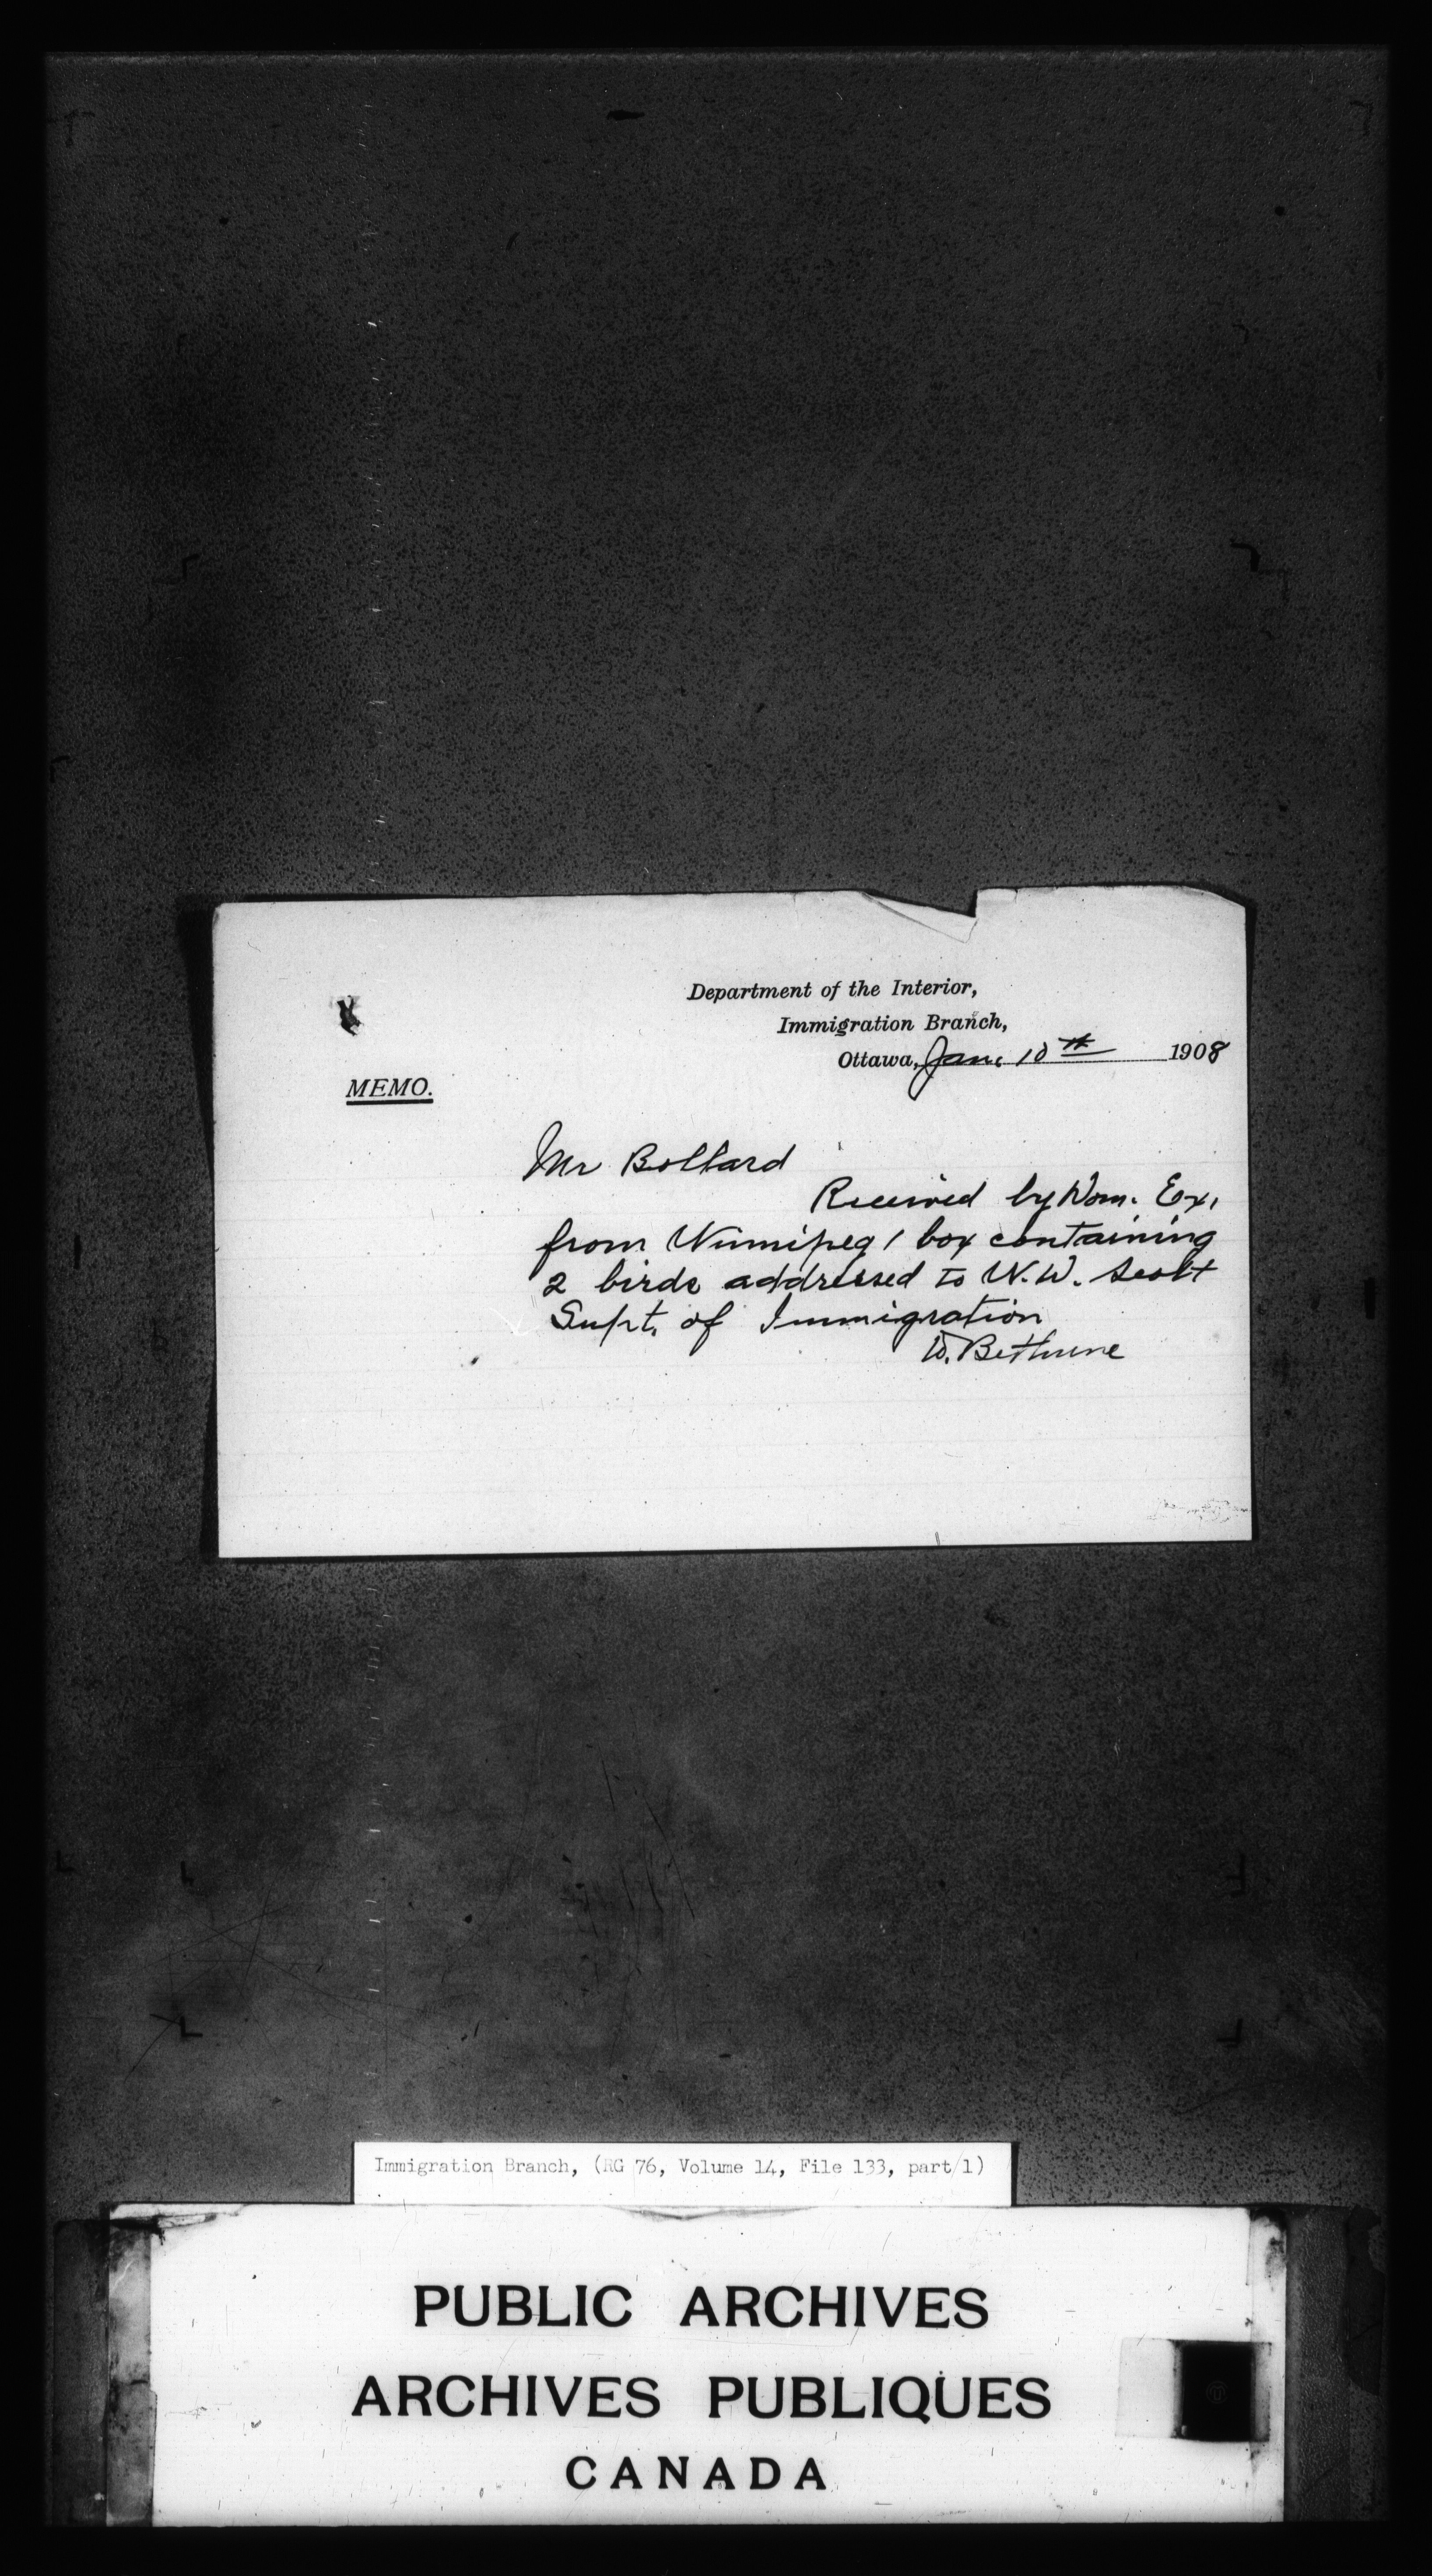 Department of the Interior,
Immigration Branch,
Ottawa, Jan. 10th 1908
MEMO.
Mr Bollard
Received by Dom. Ex.
from Winnipeg 1 box containing
2 birds addressed to W.W. Scott
Supt. of Immigration
W. Bethune
Immigration Branch, (RG 76, Volume 14, File 133, part 1)
PUBLIC ARCHIVES
ARCHIVES PUBLIQUES
CANADA